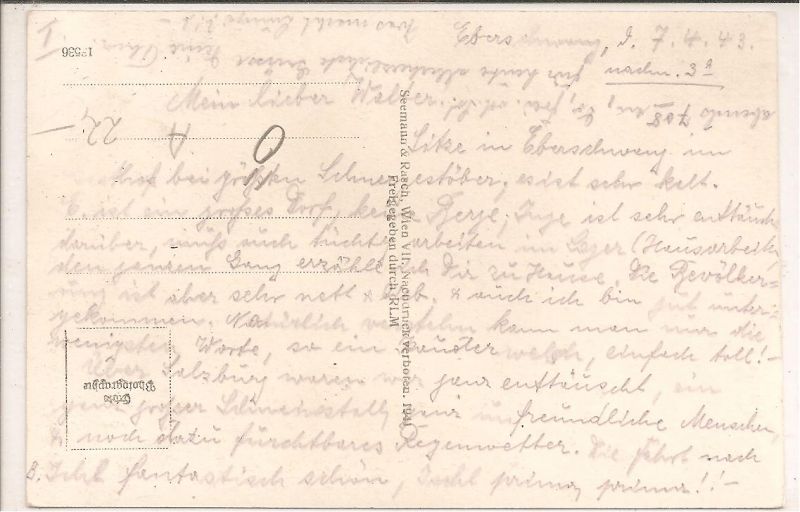 Ebersch, d. 7.4.43.
nachm. 3h
Mein lieber Walter!
Sitze in Eberschwang im
bei größtem Schneegestöber, es ist sehr kalt.
Es ist ein großes Dorf, keine Berge, Inge ist sehr enttäuscht
darüber, muß auch tüchtig arbeiten im Lager (Hausarbeit)
den ganzen Gang erzähle ich Dir zu Hause. Die Bevölker-
ung ist aber sehr nett & lieb. & auch ich bin gut unter-
gekommen. Natürlich verstehn kann man nur die
wenigsten Worte, so ein Kauderwelsch, einfach toll!-
Über Salzburg waren wir ganz enttäuscht, ein
ganz großer Schweinestall, ganz unfreundliche Menschen,
& noch dazu furchtbares Regenwetter. Die Fahrt nach
B. Ischl fantastisch schön, Ischl prima, prima!!-
abends 7
für heute
Was macht
Deine
I
12536
22,-
A
0
Seemann & Rasch, Wien VII. Nachdruck verboten. 1941
Freigegeben durch RLM
Echte
Photographie